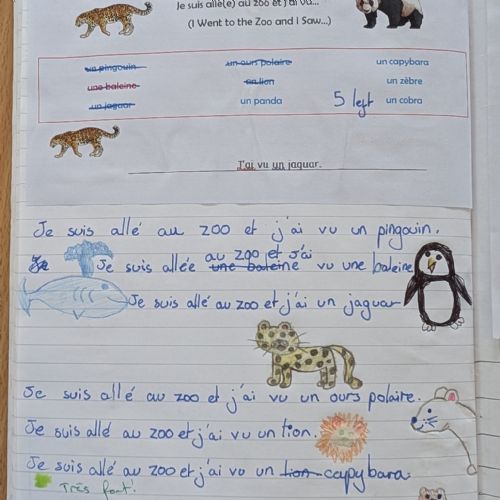 Je suis allé(e) au zoo et j'ai vu...
(I Went to the Zoo and I Saw...)
un pingouin un ours polaire un capybara
une baleine un lion un zèbre
un jaguar un panda 5 left un cobra
J'ai vu un jaguar.
Je suis allé au zoo et j'ai vu un pingouin.
Je suis allée au zoo et j'ai une baleine vu une baleine
Je suis allé au zoo et j'ai un jaguar
Je suis allé au zoo et j'ai vu un ours polaire.
Je suis allé au zoo et j'ai vu un lion.
Je suis allé au zoo et j'ai vu un lion capybara.
Très